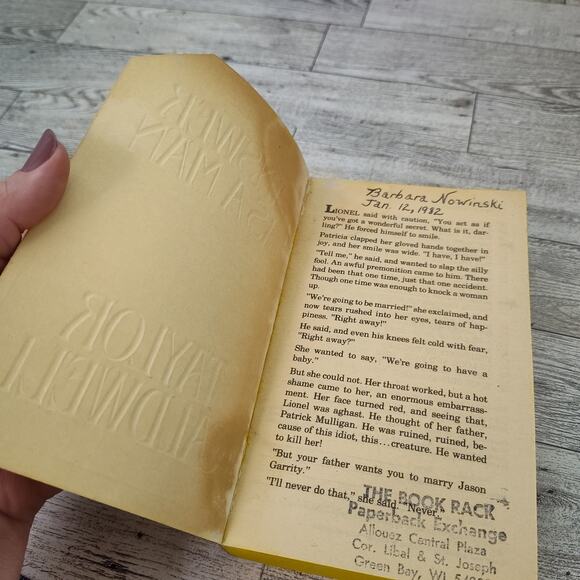 A MAN
TAYLOR
Barbara Nowinski
Jan. 12, 1982
LIONEL said with caution, "You act as if
you've got a wonderful secret. What is it, dar-
ling?" He forced himself to smile.
Patricia clapped her gloved hands together in
joy, and her smile was wide. "I have, I have!"
"Tell me," he said, and wanted to slap the silly
fool. An awful premonition came to him. There
had been that one time, just that one accident.
Though one time was enough to knock a woman
up.
"We're going to be married!" she exclaimed, and
now tears rushed into her eyes, tears of hap-
piness. "Right away!"
He said, and even his knees felt cold with fear,
"Right away?"
She wanted to say, "We're going to have a
baby."
But she could not. Her throat worked, but a hot
shame came to her, an enormous embarrass-
ment. Her face turned red, and seeing that,
Lionel was aghast. He thought of her father,
Patrick Mulligan. He was ruined, ruined, be-
cause of this idiot, this...creature. He wanted
to kill her!
"But your father wants you to marry Jason
Garrity."
"I'll never do that," she said. "Never."
THE BOOK RACK
Paperback Exchange
Allouez Central Plaza
Cor. Libal & St. Joseph
Green Bay, WI